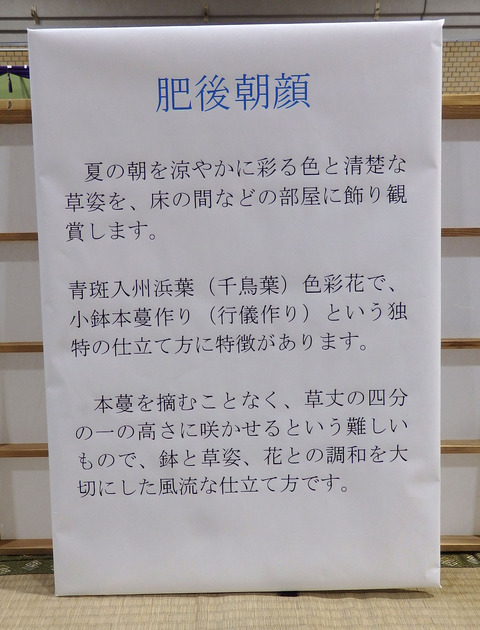 肥後朝顔
夏の朝を涼やかに彩る色と清楚な
草姿を、床の間などの部屋に飾り観
賞します。
青斑入州浜葉（千鳥葉）色彩花で、
小鉢本蔓作り（行儀作り）という独
特の仕立て方に特徴があります。
本蔓を摘むことなく、草丈の四分
の一の高さに咲かせるという難しい
もので、鉢と草姿、花との調和を大
切にした風流な仕立て方です。